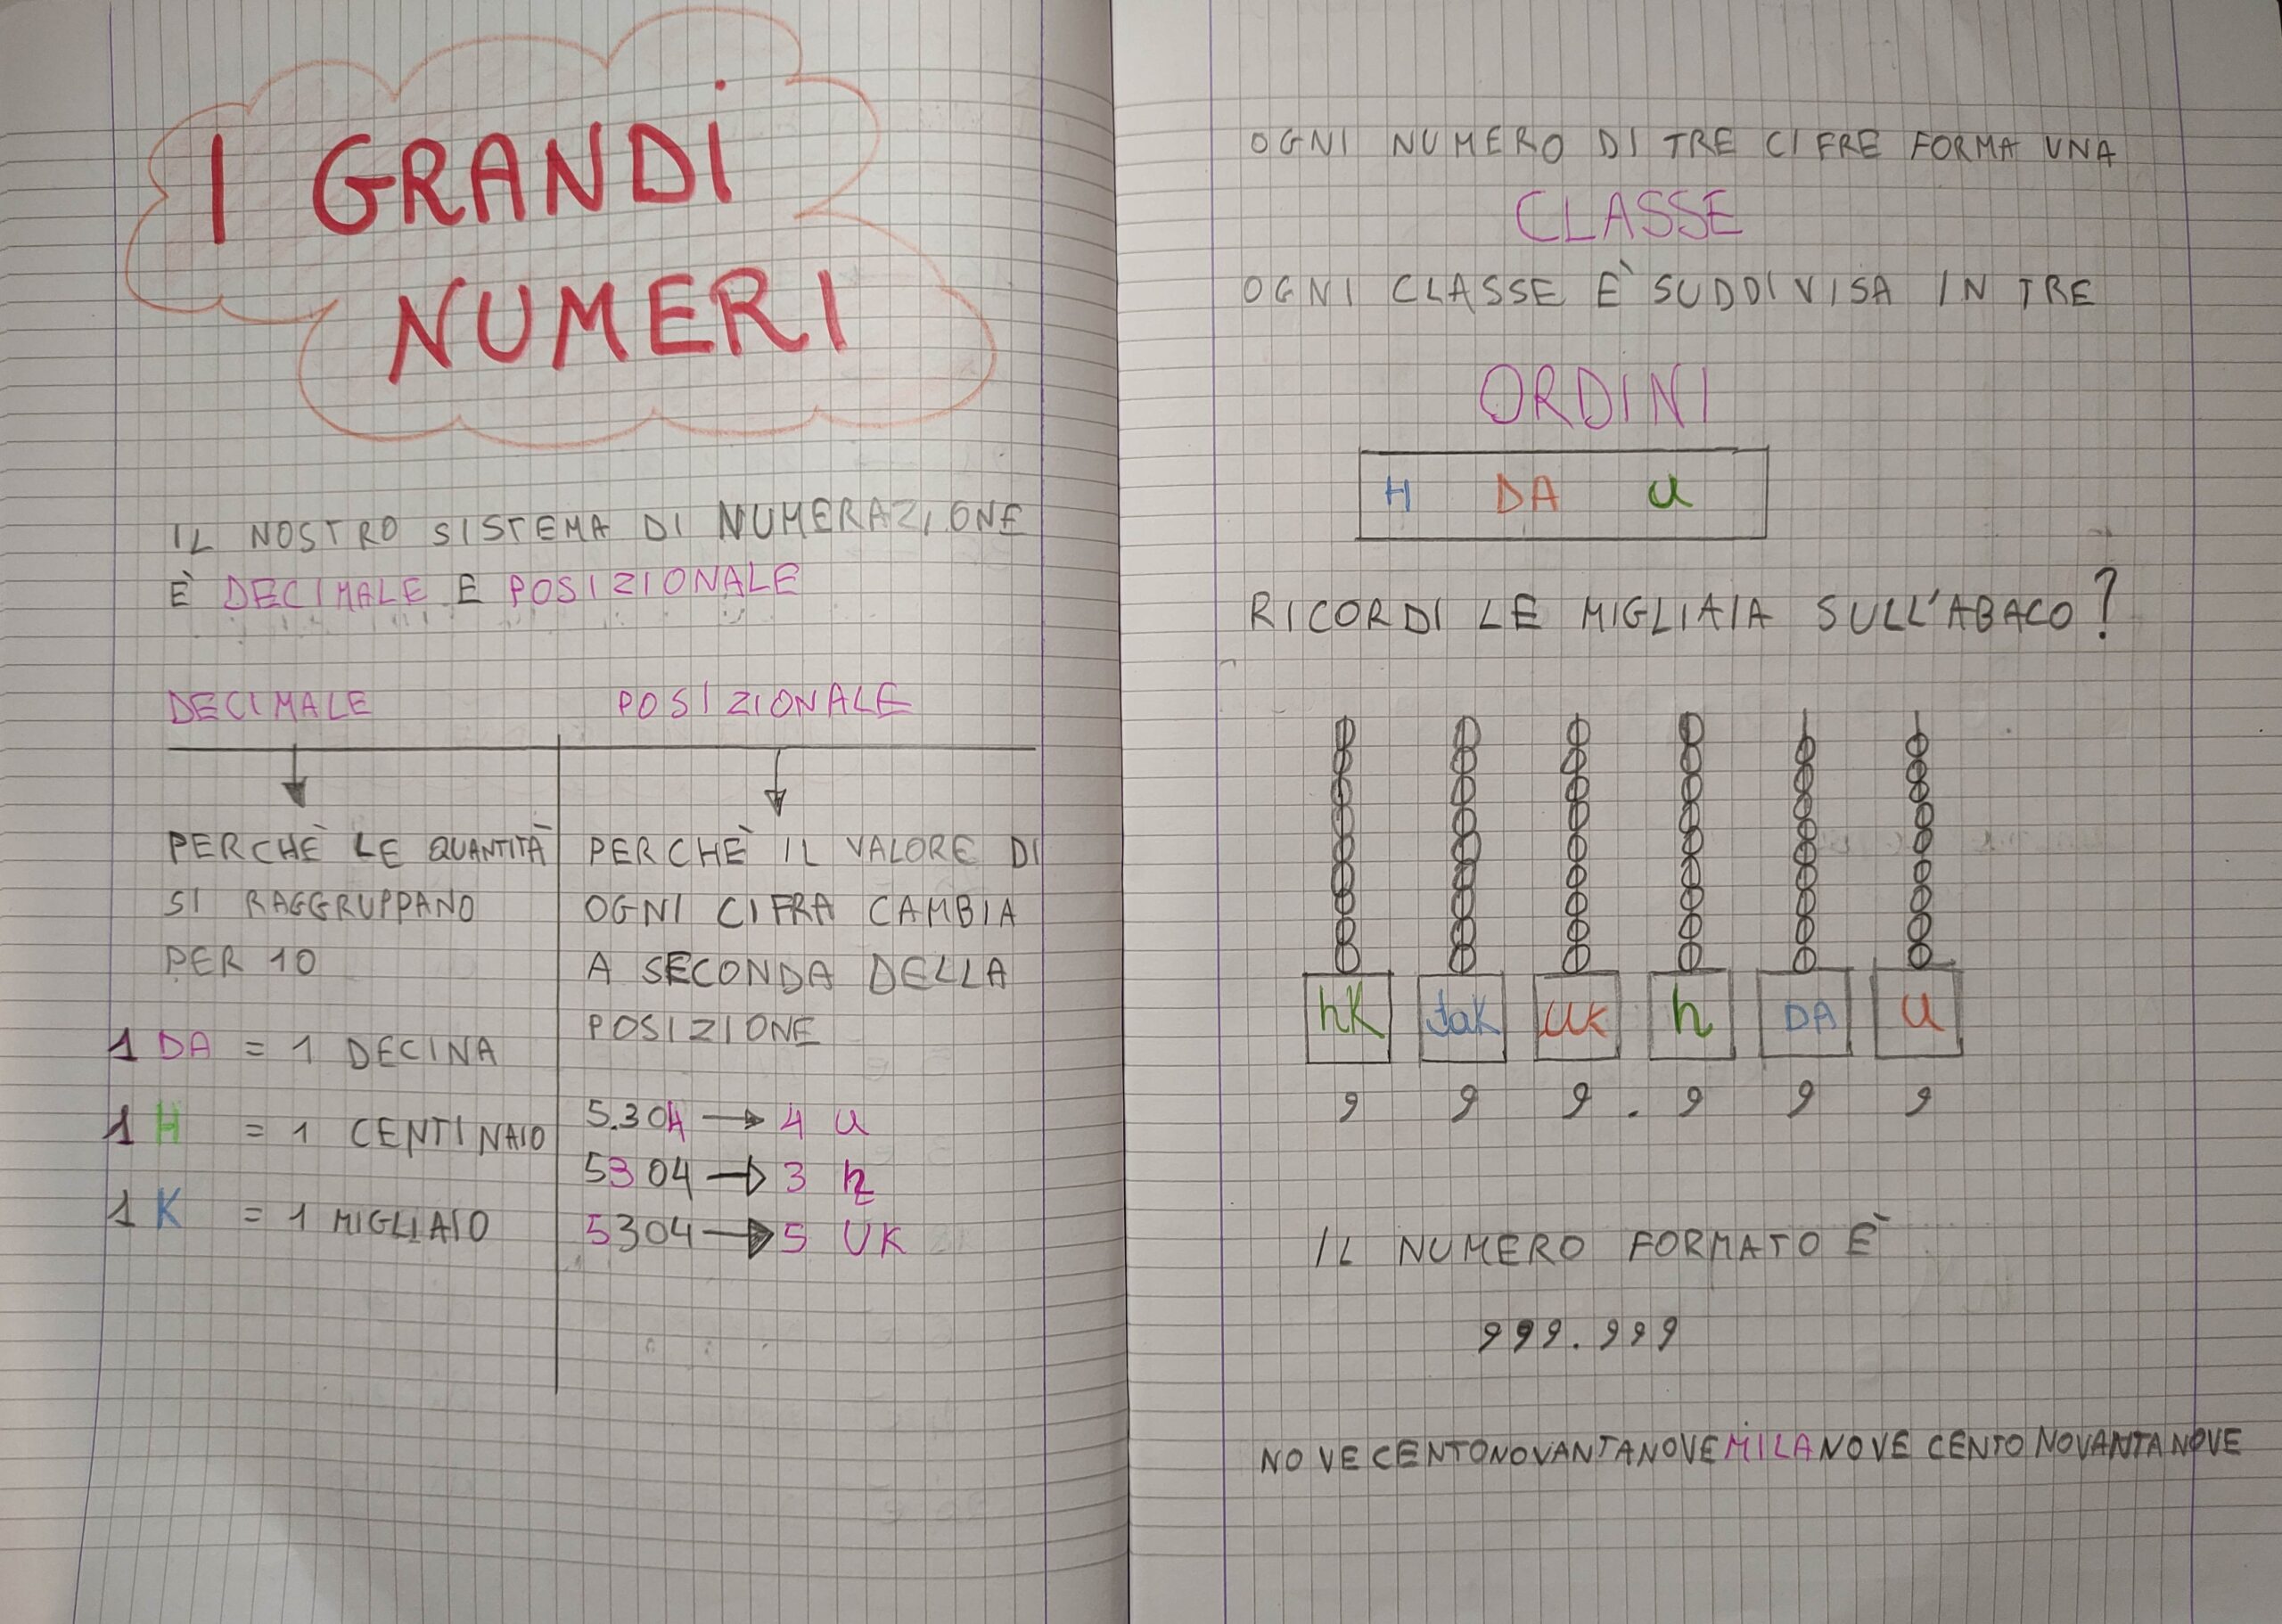 I GRANDI
NUMERI
IL NOSTRO SISTEMA DI NUMERAZIONE
È DECIMALE E POSIZIONALE
DECIMALE
PERCHÈ LE QUANTITÀ
SI RAGGRUPPANO
PER 10
1 DA = 1 DECINA
1 H = 1 CENTINAIO
1 K = 1 MIGLIAIO
POSIZIONALE
PERCHÈ IL VALORE DI
OGNI CIFRA CAMBIA
A SECONDA DELLA
POSIZIONE
5.304 → 4 U
5304 → 3 h
5304 → 5 UK
OGNI NUMERO DI TRE CIFRE FORMA UNA
CLASSE
OGNI CLASSE È SUDDIVISA IN TRE
ORDINI
H DA U
RICORDI LE MIGLIAIA SULL'ABACO?
hK daK UK h DA U
9 9 9 . 9 9 9
IL NUMERO FORMATO È
999.999
NOVECENTONOVANTANOVEMILANOVECENTONOVANTANOVE